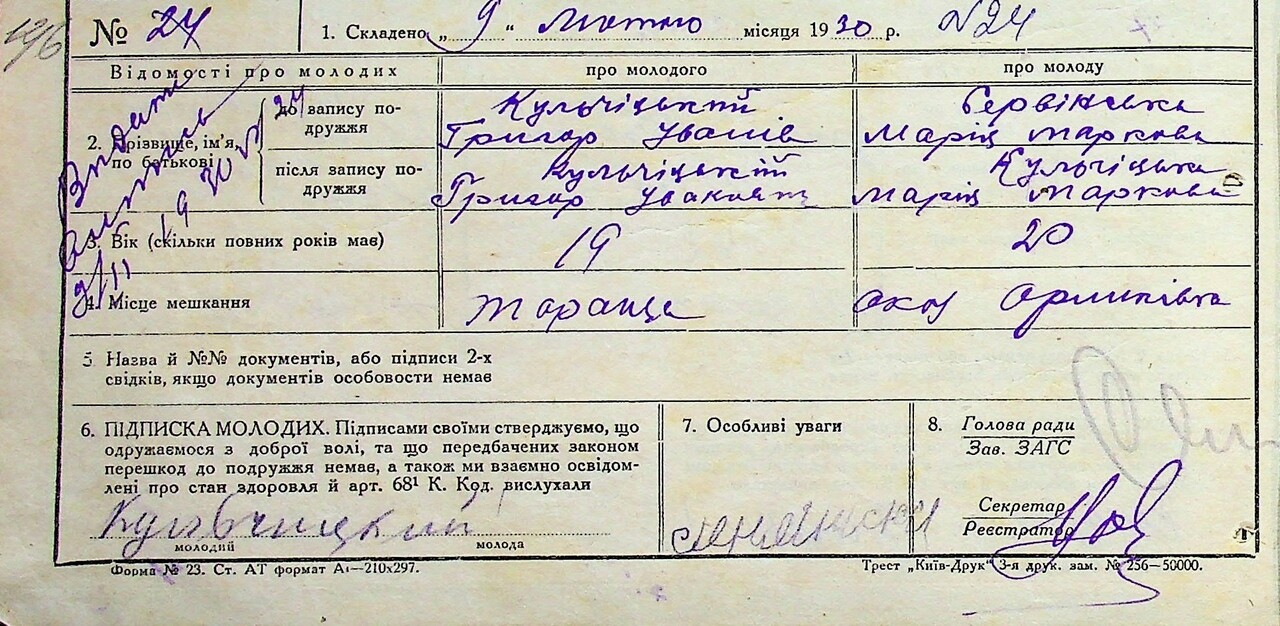 196
№ 24 1. Складено „ 9 “ Лютого місяця 1930 р. N24
Відомості про молодих про молодого про молоду
2. Прізвище, ім'я, по батькові
до запису подружжя
Кульчіцький
Григор Уванів
Сервінська
Марія Маркова
після запису подружжя
Кульчіцький
Григор
Кульчіцька
Марія Маркова
3. Вік (скільки повних років має) 19 20
4. Місце мешкання Тараща Орликівка
5 Назва й №№ документів, або підписи 2-х
свідків, якщо документів особовости немає
6. ПІДПИСКА МОЛОДИХ. Підписами своїми стверджуємо, що
одружаємося з доброї волі, та що передбачених законом
перешкод до подружжя немає, а також ми взаємно освідом-
лені про стан здоровля й арт. 68¹ К. Код. вислухали
молодий молода
7. Особливі уваги
8. Голова ради
Зав. ЗАГС
Секретар
Реєстратор
Форма № 23. Ст. АТ формат А₄—210х297. Трест „Київ-Друк“ 3-я друк. зам. № 256—50000.